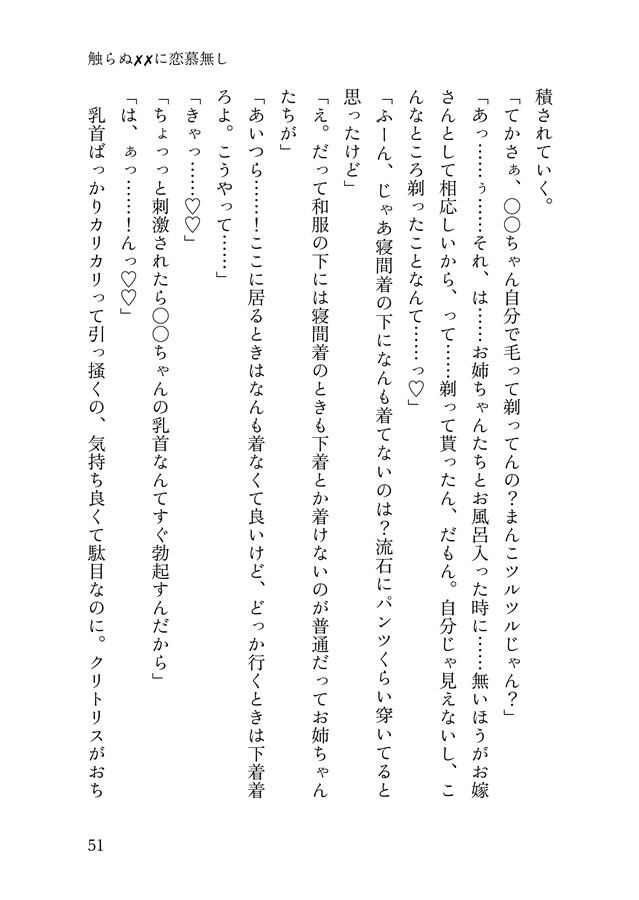 触らぬ✗✗に恋慕無し
積されていく。
「てかさぁ、〇〇ちゃん自分で毛って剃ってんの？まんこツルツルじゃん？」
「あっ……ぅ……それ、は……お姉ちゃんたちとお風呂入った時に……無いほうがお嫁
さんとして相応しいから、って……剃って貰ったん、だもん。自分じゃ見えないし、こ
んなところ剃ったことなんて……っ♡」
「ふーん、じゃあ寝間着の下になんも着てないのは？流石にパンツくらい穿いてると
思ったけど」
「え。だって和服の下には寝間着のときも下着とか着けないのが普通だってお姉ちゃん
たちが」
「あいつら……！ここに居るときはなんも着なくて良いけど、どっか行くときは下着着
ろよ。こうやって……」
「きゃっ……♡♡」
「ちょっっと刺激されたら〇〇ちゃんの乳首なんてすぐ勃起すんだから」
「は、ぁっ……！んっ♡♡」
乳首ばっかりカリカリって引っ掻くの、気持ち良くて駄目なのに。クリトリスがおち
51